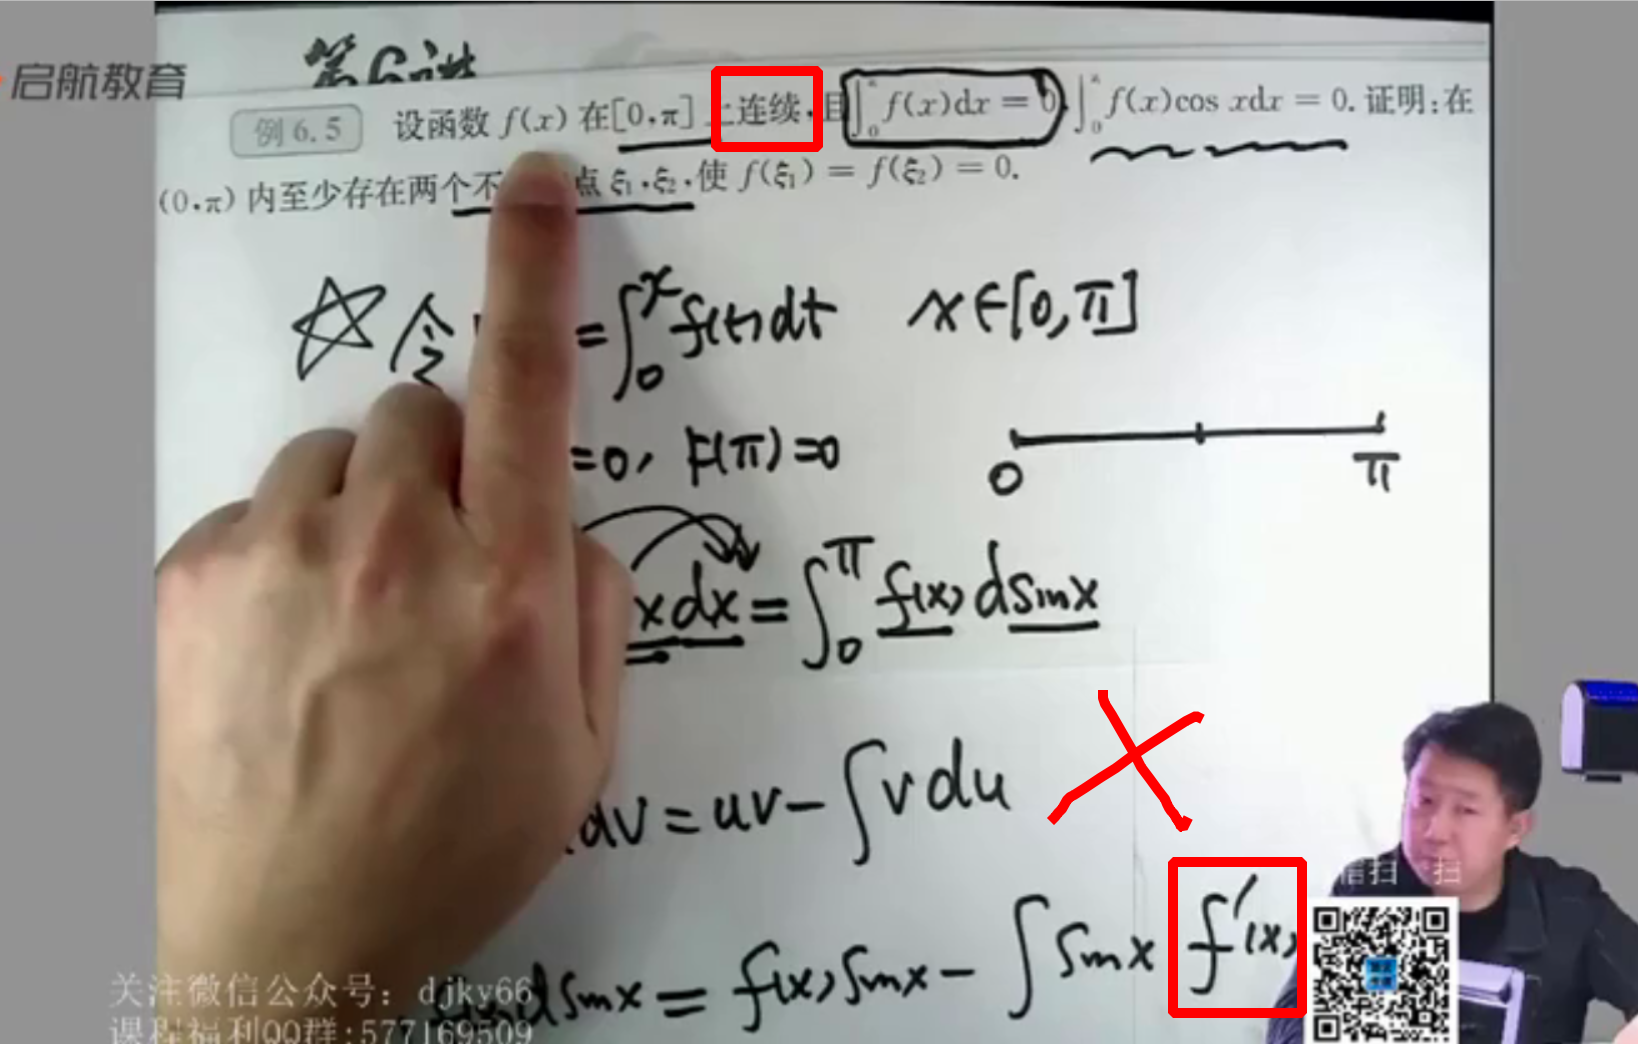 启航教育
第6讲
例 6.5 设函数 f(x) 在[0,π]上连续,且∫₀^π f(x)dx = 0,∫₀^π f(x)cos xdx = 0. 证明:在
(0,π) 内至少存在两个不 点 ξ₁,ξ₂,使 f(ξ₁) = f(ξ₂) = 0.
令 =∫₀^x f(t)dt x∈[0,π]
=0, F(π)=0
0 π
xdx = ∫₀^π f(x) dsinx
dv = uv - ∫vdu
扫一扫
dsinx = f(x)sinx - ∫sinx f'(x)
关注微信公众号: djky66
课程福利QQ群:577169509